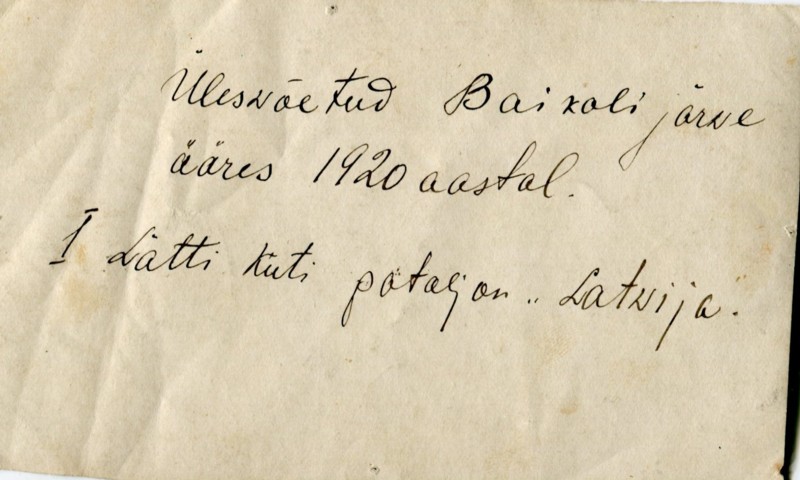 Üleswõetud Baikali järwe
ääres 1920 aastal.
I Lätti küti pataljon „Latwija".